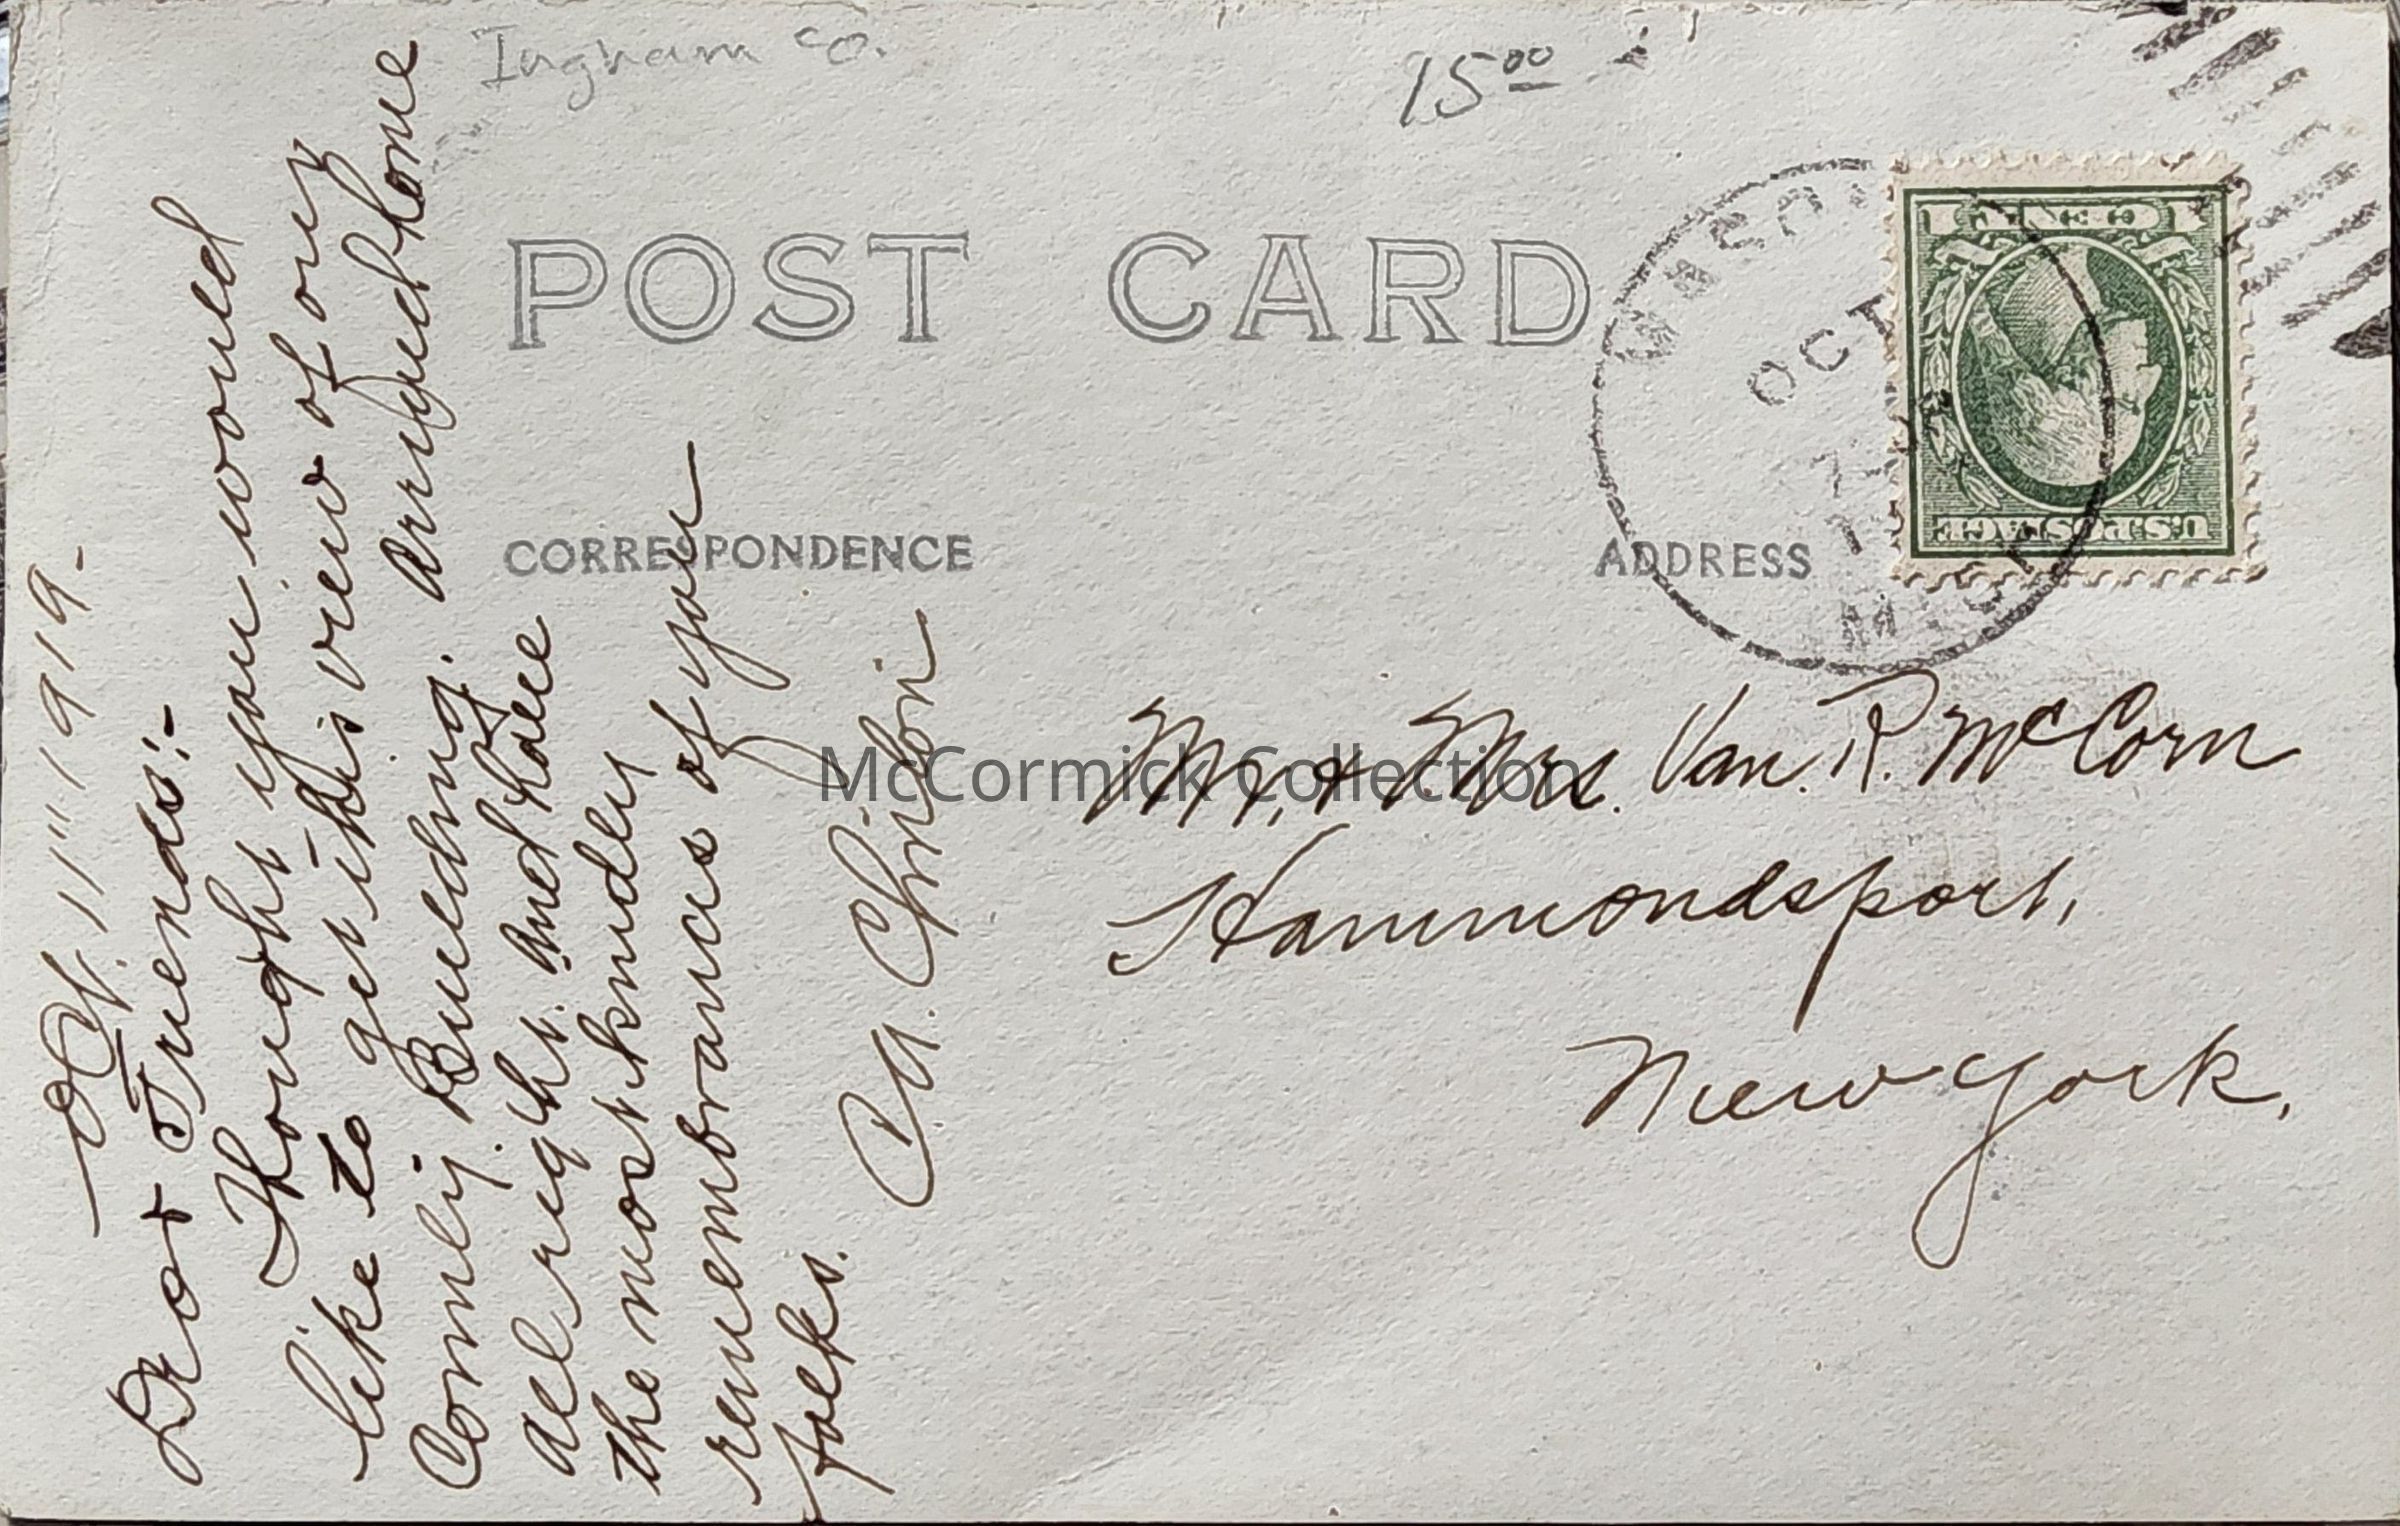 Ingham Co.
15⁰⁰
POST CARD
CORRESPONDENCE
ADDRESS
OCT
MICH
1 CENT 1
U.S. POSTAGE
Oct. 11" 1919-
Dear Friends:-
Thought you would
like to get this view of our
County Building. Arrived home
all right. And have
the most kindly
remembrances of you
folks.
Mr. & Mrs. Van. R. McCorn
Hammondsport,
New York.
McCormick Collection